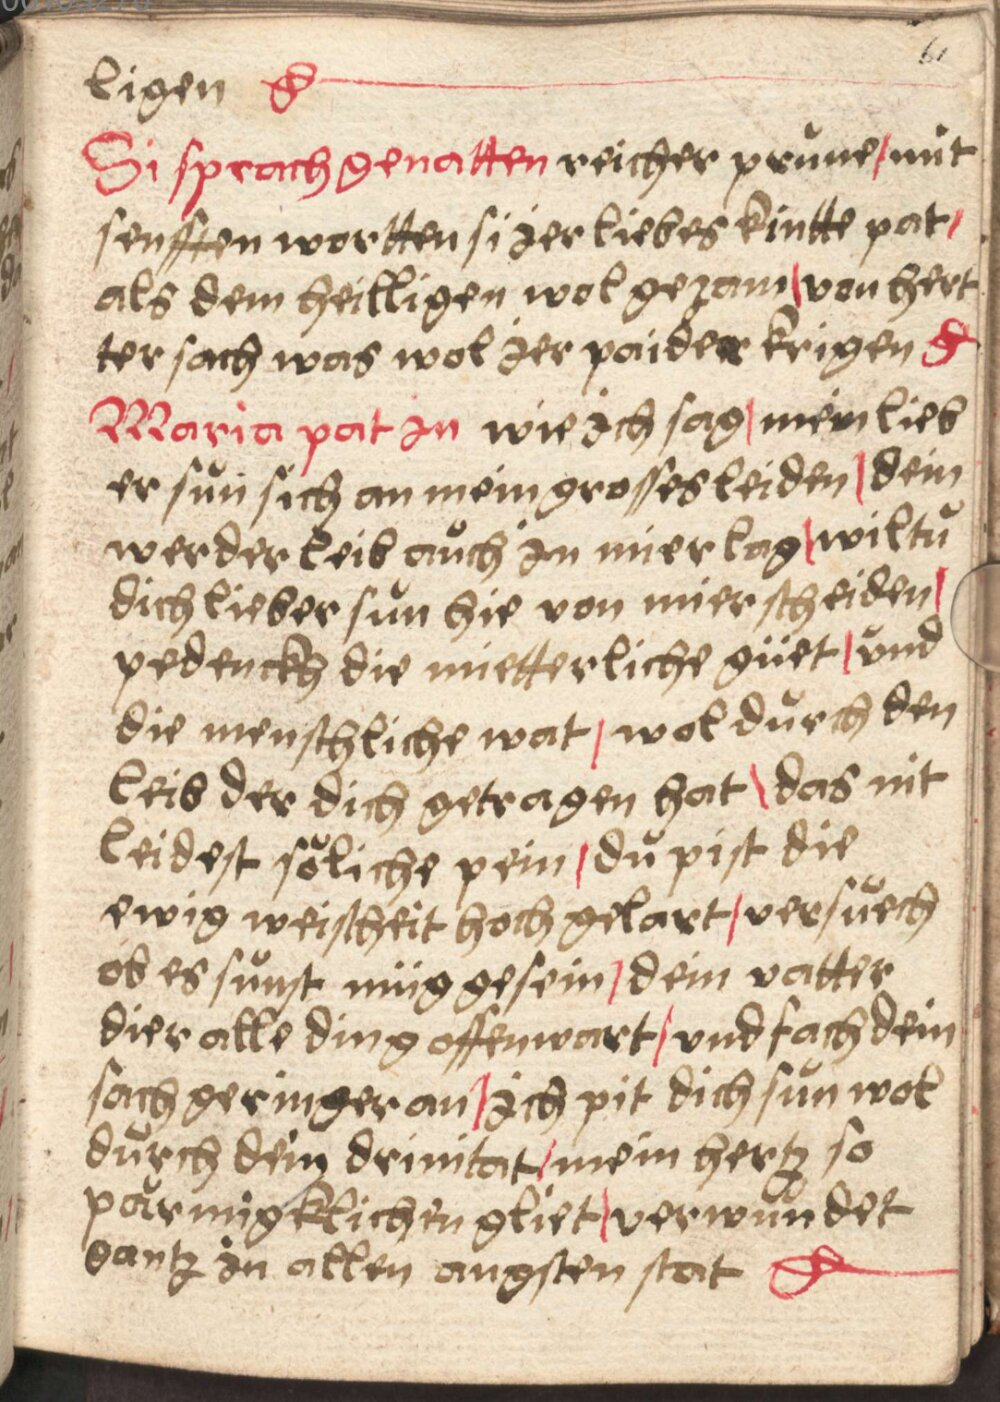 61
ligen
Si sprach genatten reicher prune / mit
senfften wortten si jer liebes kintte pat /
als dem heilligen wol gezam / von hert
ter sach was wol jer paider krigen
Maria pat in wie ich sag / mein lieb
er sun sich an mein grosses leiden / dein
werder leib auch in mier lag / wiltu
dich lieber sun hie von mier scheiden /
pedenckh die mietterliche güet / vnd
die menschliche wat / wol durch den
leib der dich getragen hat / das nit
leidest söliche pein / du pist die
ewig weisheit hoch gelart / versuech
ob es sunst müg gesein / dein vatter
dier alle ding offenwart / vnd fach dein
sach geringer an / ich pit dich sun wol
durch dein drinitat / mein hertz so
parmigklichen gliet / verwundet
gantz in allen angsten stat